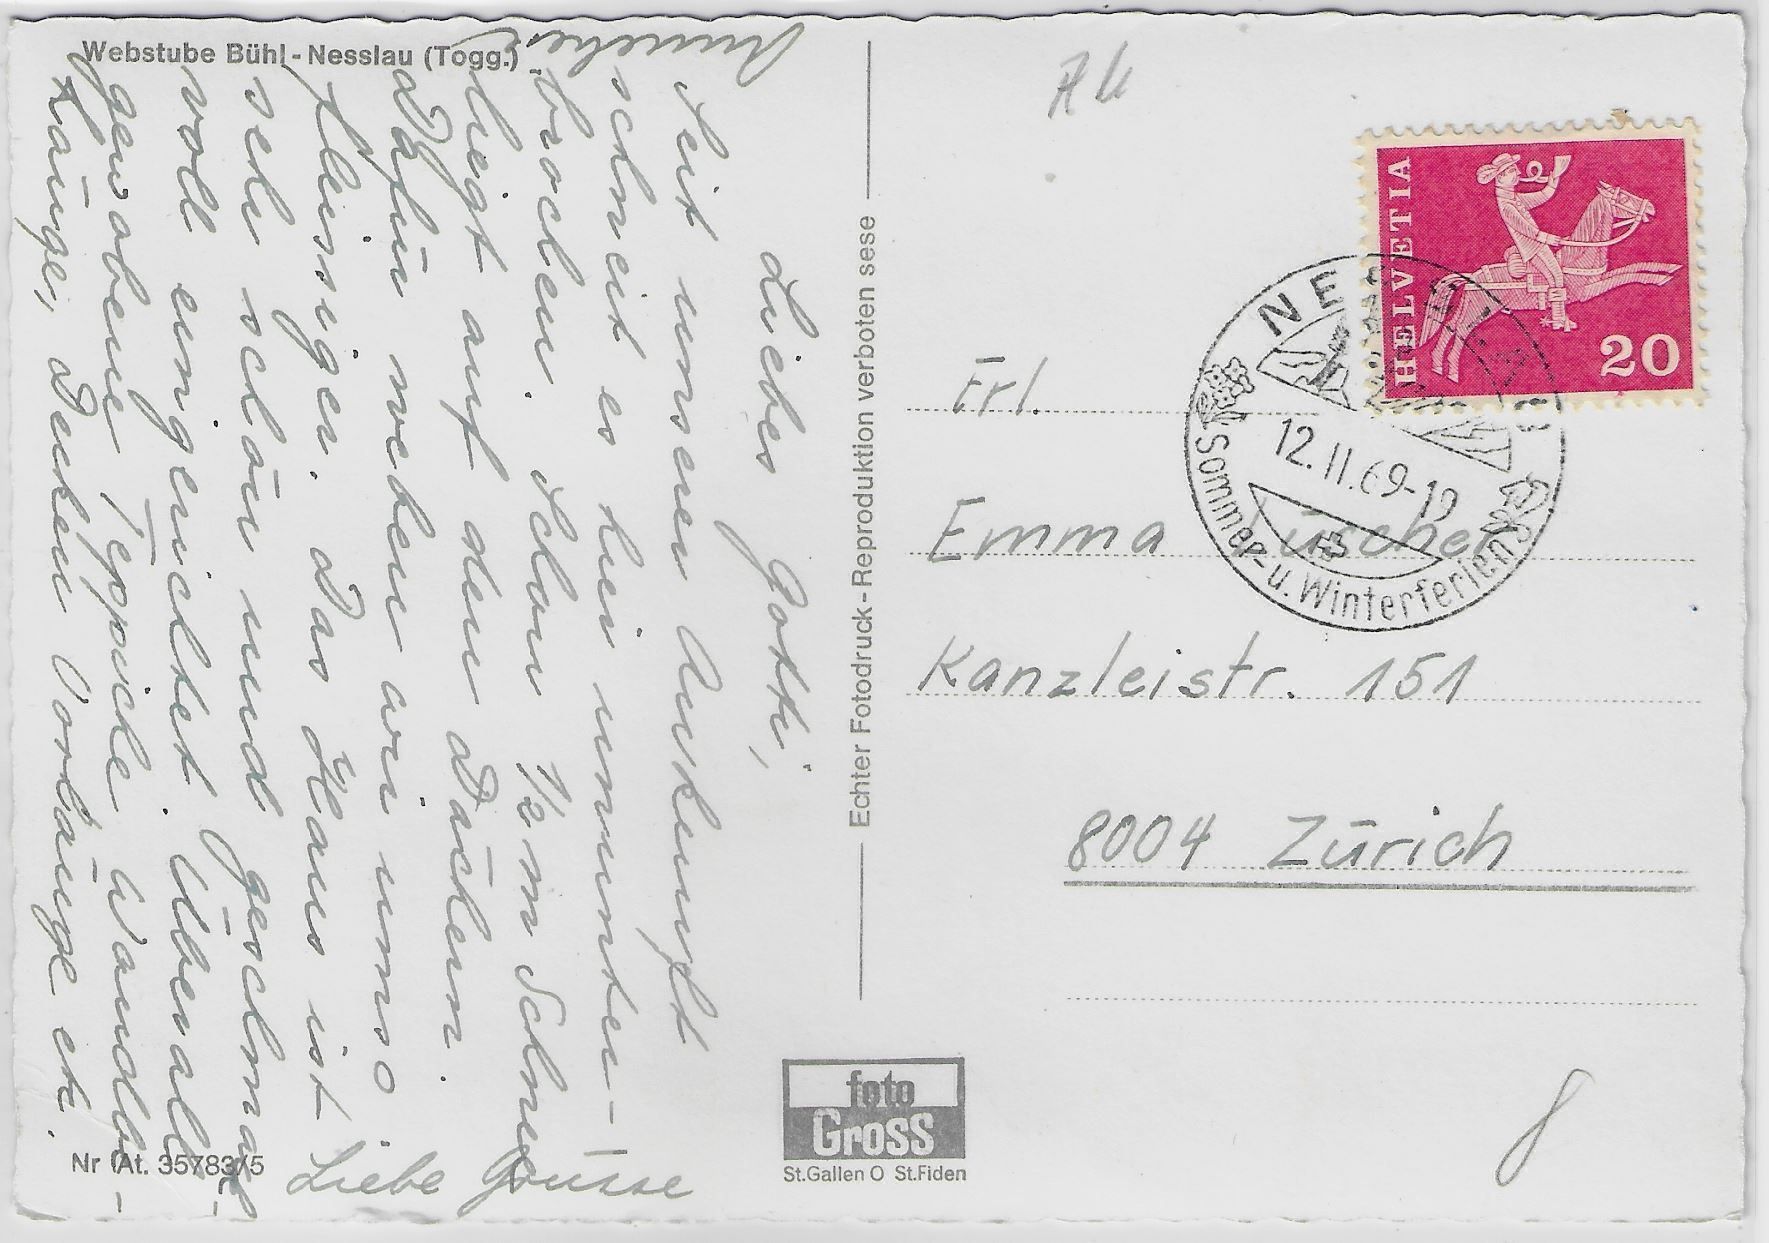 Webstube Bühl - Nesslau (Togg.)
Liebes Gotti,
Seit unserer Ankunft
schneit es hier ununter-
brochen. Schon 1/2 m Schnee
liegt auf den Dächern.
Dafür weben wir umso
fleissiger. Das Haus ist
sehr schön und geschmack-
voll eingerichtet. Überall
gewobene Teppiche, Wandbe-
hänge, Decken, Vorhänge etc.
Liebe Grüsse
Echter Fotodruck - Reproduktion verboten sese
Nr At. 35783/5
foto
Gross
St.Gallen O St.Fiden
HELVETIA
20
NESSLAU
12.II.69-19
Sommer- u. Winterferien
Frl.
Emma Lüscher
Kanzleistr. 151
8004 Zürich